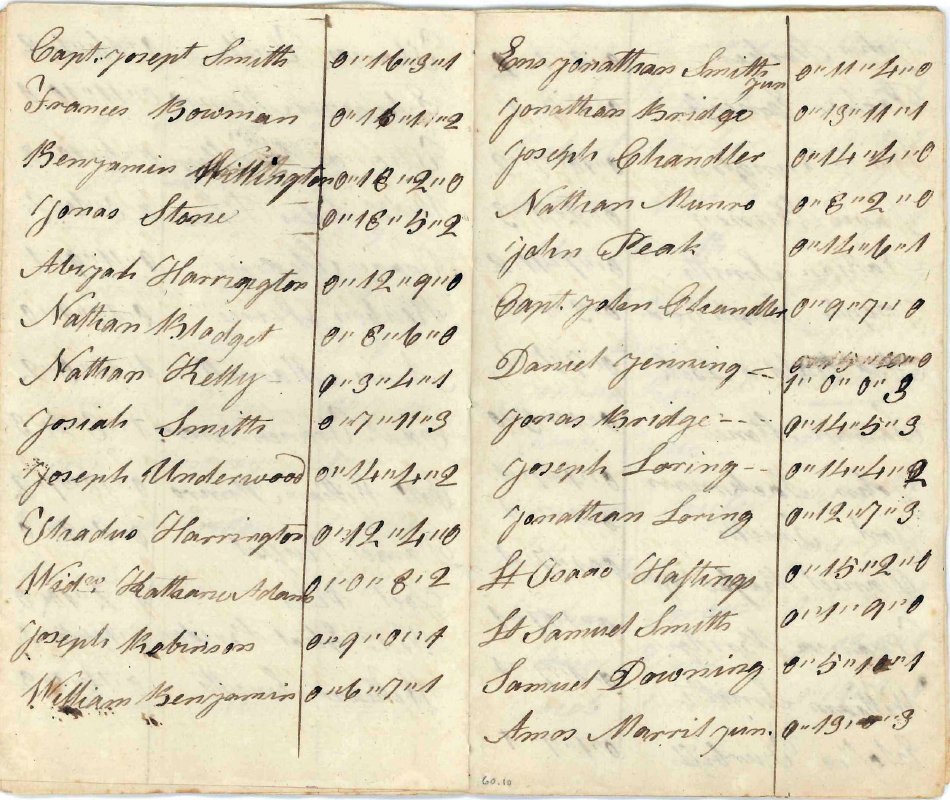 Capt. Joseph Smith 0"16"3"1
Frances Bowman 0"16"1"2
Benjamin Willington 0"18"2"0
Jonas Stone 0"18"5"2
Abijah Harrington 0"12"9"0
Nathan Blodget 0"8"6"0
Nathan Kelly 0"3"4"1
Josiah Smith 0"7"11"3
Joseph Underwood 0"14"4"2
Thadus Harrington 0"12"4"0
Widw. Katharine Adams 0"0"8"2
Joseph Robinson 0"9"0"1
William Benjamin 0"6"7"1
Ens Jonathan Smith Jun 0"11"4"0
Jonathan Bridge 0"13"11"1
Joseph Chandler 0"14"4"0
Nathan Munro 0"8"2"0
John Peak 0"14"6"1
Capt. John Chandler 0"9"7"0
Daniel Jenning =
1"0"0"3
Jonas Bridge --- 0"14"5"3
Joseph Loring -- 0"14"4"2
Jonathan Loring 0"12"7"3
Lt Isaac Hastings 0"15"2"0
Lt Samuel Smith 0"1"9"0
Samuel Downing 0"5"10"1
Amos Marrit jun. 0"13"0"3
60.10